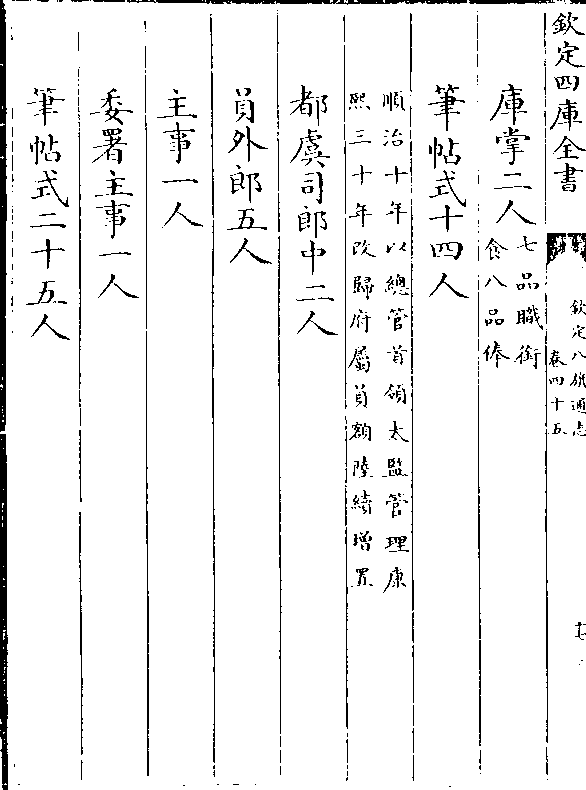 欽定四庫全書
欽定八旗通志
卷四十五
庫掌二人七品職銜
食八品俸
筆帖式十四人
順治十年以總管首領太監管理康
熙三十年改歸府屬員額陸續增置
都虞司郎中二人
員外郎五人
主事一人
委署主事一人
筆帖式二十五人